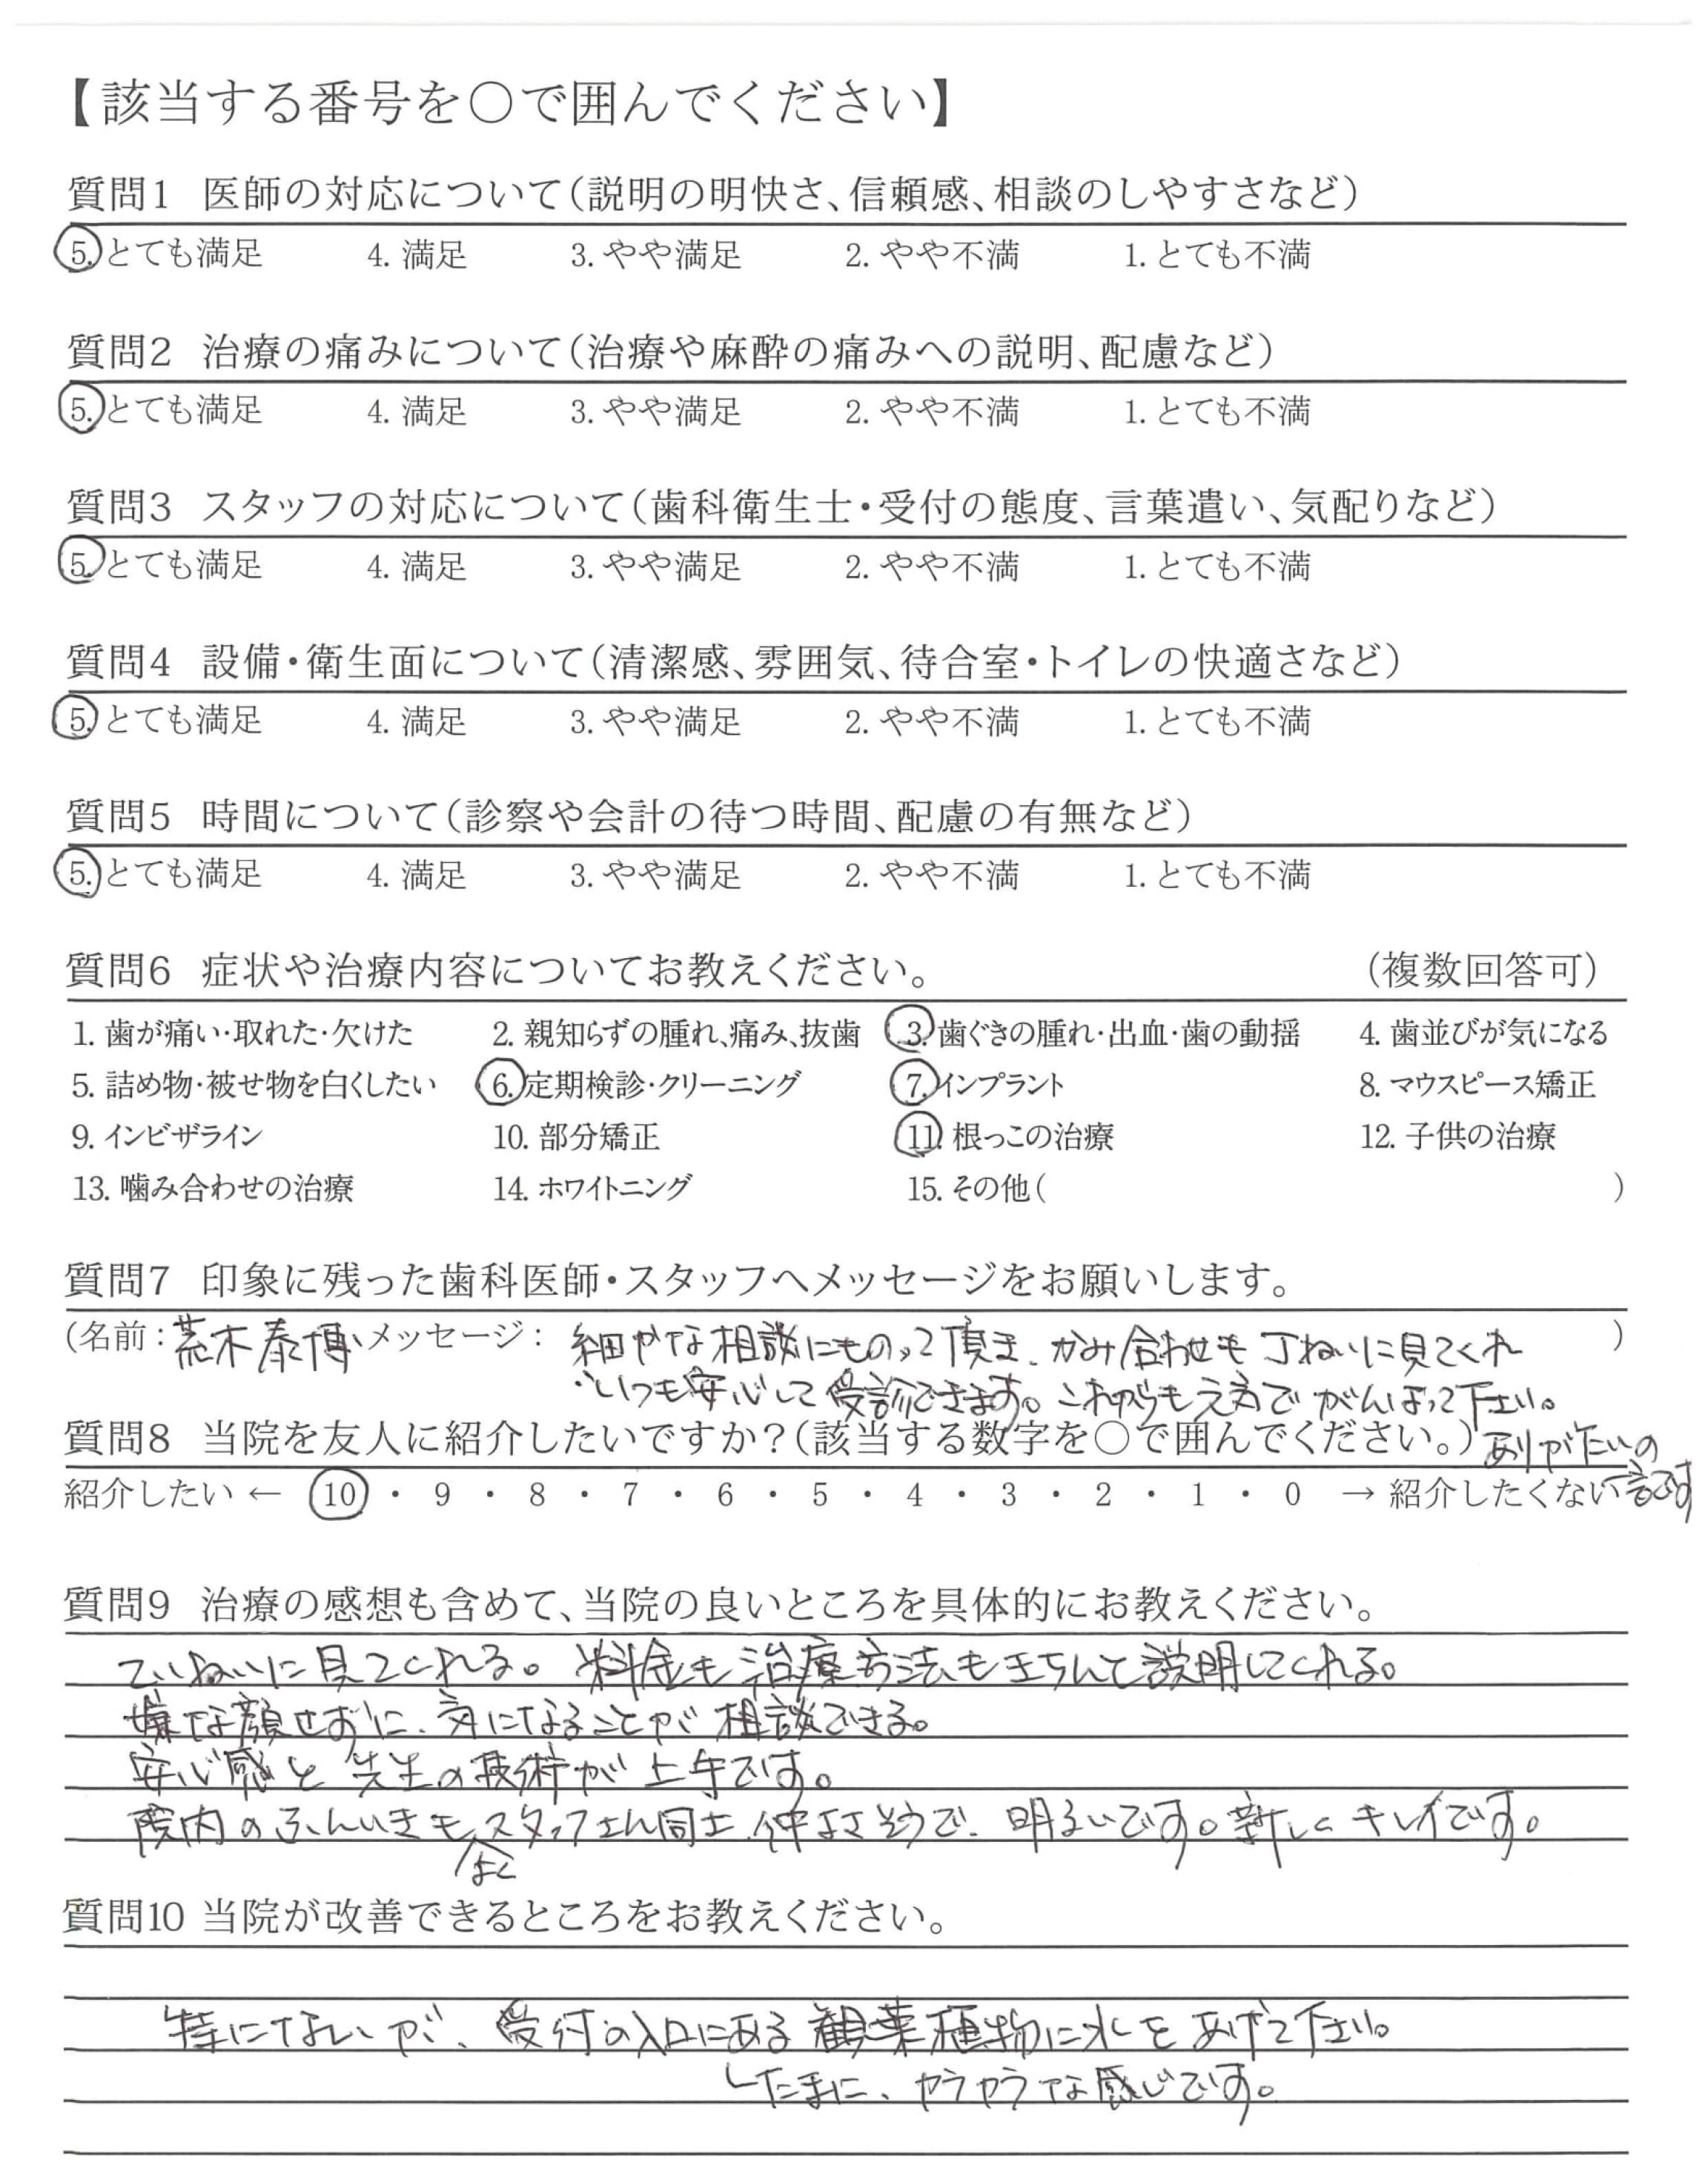 【該当する番号を○で囲んでください】
質問1 医師の対応について(説明の明快さ、信頼感、相談のしやすさなど)
5. とても満足 4. 満足 3. やや満足 2. やや不満 1. とても不満
質問2 治療の痛みについて(治療や麻酔の痛みへの説明、配慮など)
5. とても満足 4. 満足 3. やや満足 2. やや不満 1. とても不満
質問3 スタッフの対応について(歯科衛生士・受付の態度、言葉遣い、気配りなど)
5. とても満足 4. 満足 3. やや満足 2. やや不満 1. とても不満
質問4 設備・衛生面について(清潔感、雰囲気、待合室・トイレの快適さなど)
5. とても満足 4. 満足 3. やや満足 2. やや不満 1. とても不満
質問5 時間について(診察や会計の待つ時間、配慮の有無など)
5. とても満足 4. 満足 3. やや満足 2. やや不満 1. とても不満
質問6 症状や治療内容についてお教えください。 (複数回答可)
1. 歯が痛い・取れた・欠けた 2. 親知らずの腫れ、痛み、抜歯 3. 歯ぐきの腫れ・出血・歯の動揺 4. 歯並びが気になる
5. 詰め物・被せ物を白くしたい 6. 定期検診・クリーニング 7. インプラント 8. マウスピース矯正
9. インビザライン 10. 部分矯正 11. 根っこの治療 12. 子供の治療
13. 噛み合わせの治療 14. ホワイトニング 15. その他( )
質問7 印象に残った歯科医師・スタッフへメッセージをお願いします。
(名前:荒木泰博 メッセージ: 細やかな相談にものって頂き、かみ合わせも丁ねいに見てくれ )
いつも安心して受診できます。これからも元気でがんばって下さい。
質問8 当院を友人に紹介したいですか?(該当する数字を○で囲んでください。) ありがたいの
紹介したい ← 10 ・ 9 ・ 8 ・ 7 ・ 6 ・ 5 ・ 4 ・ 3 ・ 2 ・ 1 ・ 0 → 紹介したくない 一言です
質問9 治療の感想も含めて、当院の良いところを具体的にお教えください。
ていねいに見てくれる。料金も治療方法もきちんと説明してくれる。
嫌な顔せずに、気になることが相談できる。
安心感と先生の技術が上手です。
院内のふんいきもスタッフさん同士仲よさそうで、明るいです。新しくキレイです。
よく
質問10 当院が改善できるところをお教えください。
特にないが、受付の入口にある観葉植物に水をあげて下さい。
たまに、カラカラな感じです。